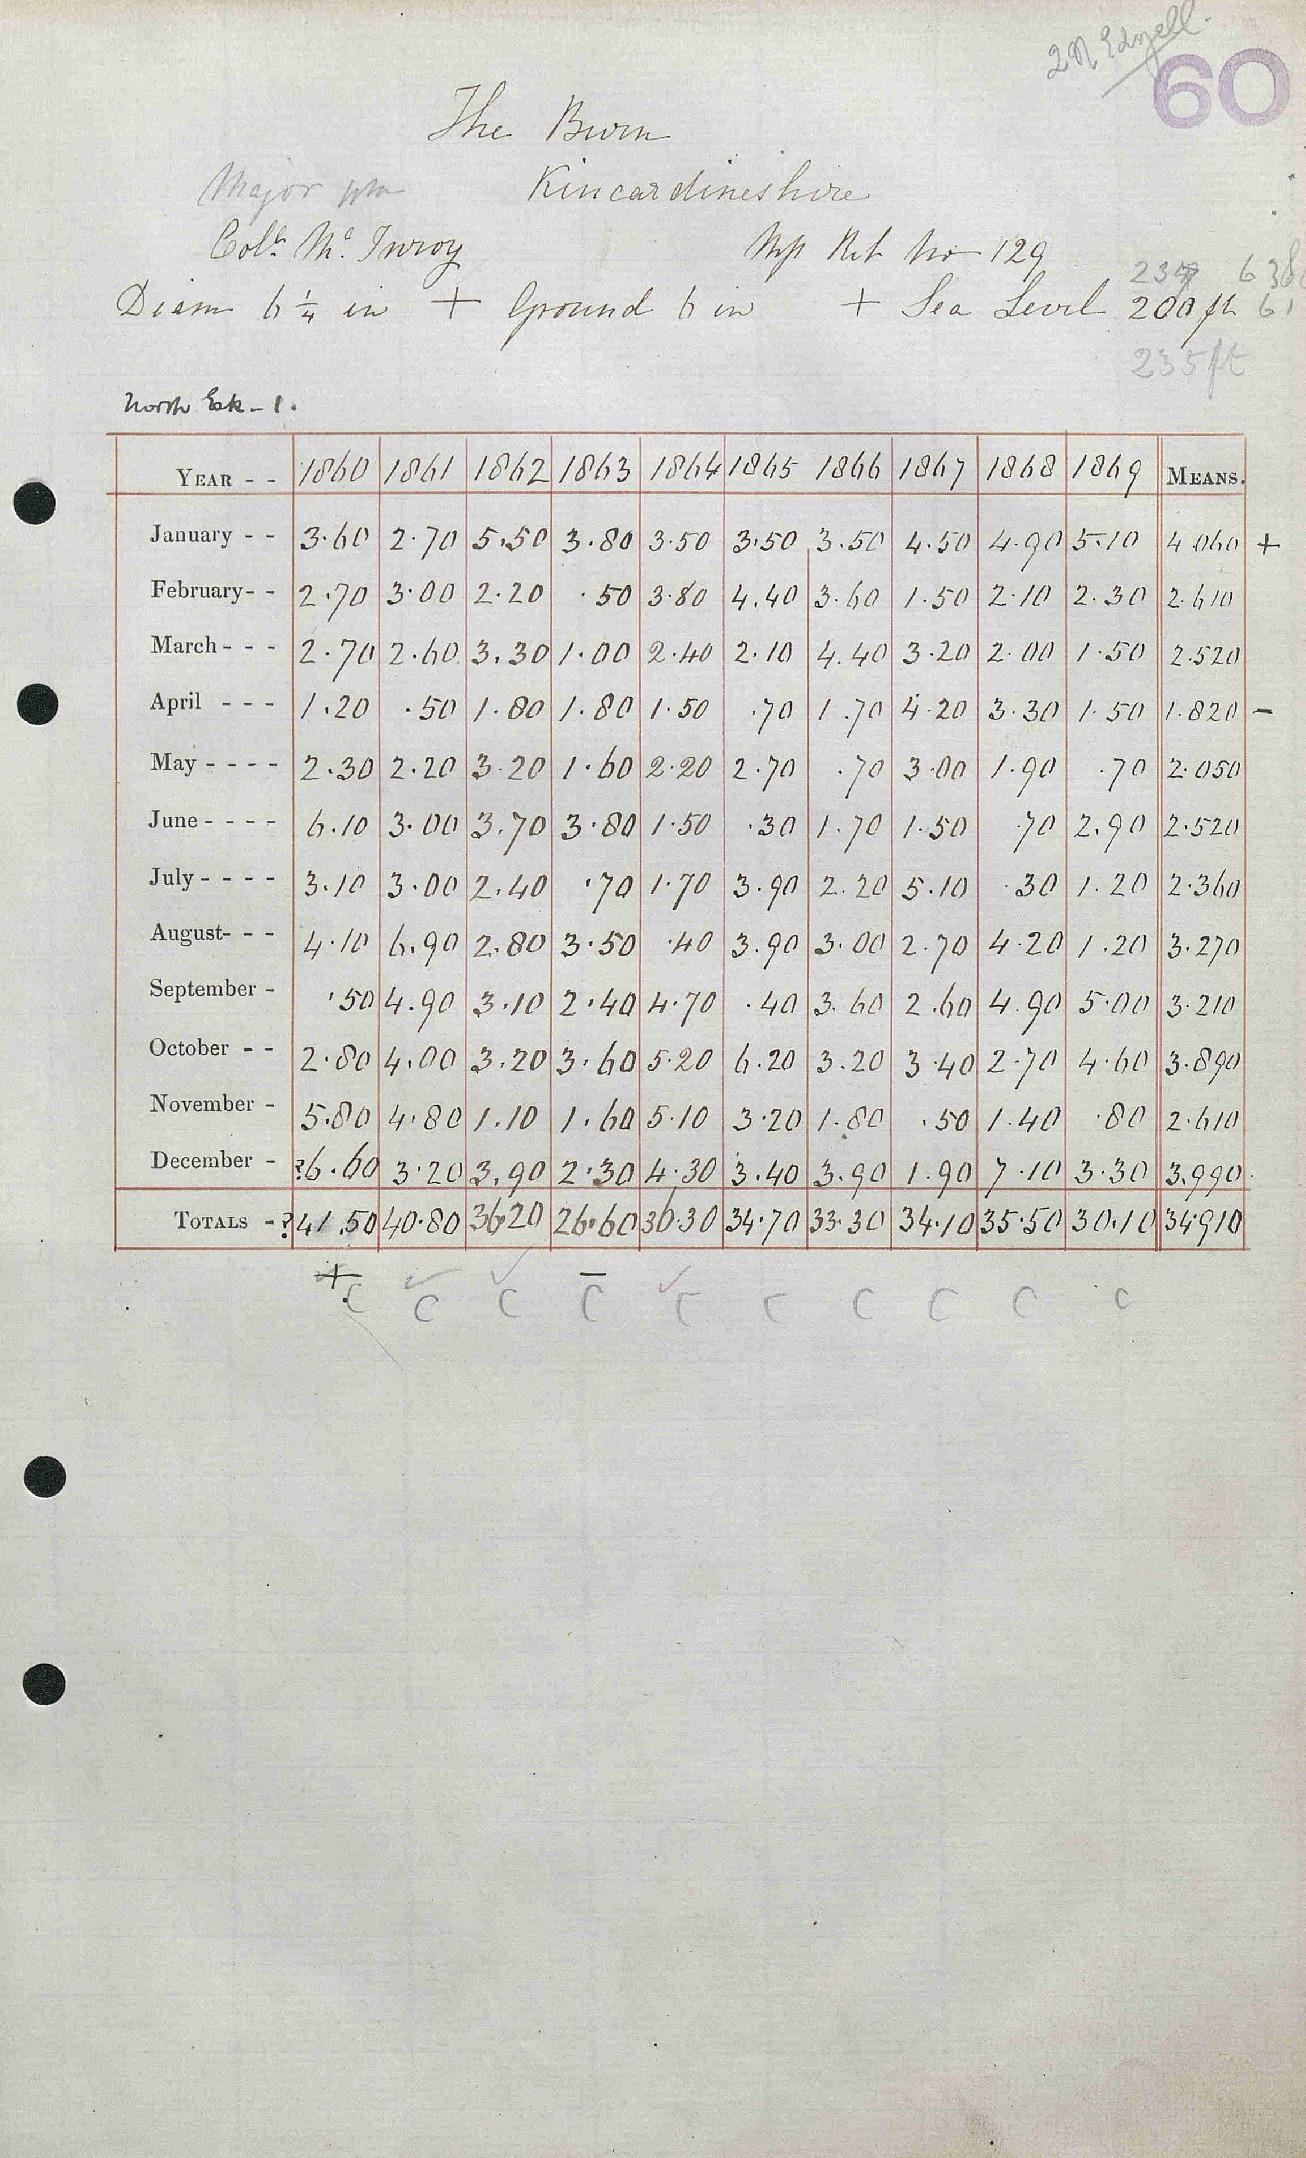 2 N Edzell.
60
The Burn
Major Kincardineshire
Coll. Mc. Inroy Ret No 129
234 638
Diam 6 1/4 in + Ground 6 in + Sea Level 200 ft 61
235 ft
North Esk - 1.
YEAR - - 1860 1861 1862 1863 1864 1865 1866 1867 1868 1869 MEANS.
January - - 3.60 2.70 5.50 3.80 3.50 3.50 3.50 4.50 4.90 5.10 4.060 +
February - - 2.70 3.00 2.20 .50 3.80 4.40 3.60 1.50 2.10 2.30 2.610
March - - - 2.70 2.60 3.30 1.00 2.40 2.10 4.40 3.20 2.00 1.50 2.520
April - - - 1.20 .50 1.80 1.80 1.50 .70 1.70 4.20 3.30 1.50 1.820 -
May - - - - 2.30 2.20 3.20 1.60 2.20 2.70 .70 3.00 1.90 .70 2.050
June - - - - 6.10 3.00 3.70 3.80 1.50 .30 1.70 1.50 .70 2.90 2.520
July - - - - 3.10 3.00 2.40 .70 1.70 3.90 2.20 5.10 .30 1.20 2.360
August - - - 4.10 6.90 2.80 3.50 .40 3.90 3.00 2.70 4.20 1.20 3.270
September - .50 4.90 3.10 2.40 4.70 .40 3.60 2.60 4.90 5.00 3.210
October - - 2.80 4.00 3.20 3.60 5.20 6.20 3.20 3.40 2.70 4.60 3.890
November - 5.80 4.80 1.10 1.60 5.10 3.20 1.80 .50 1.40 .80 2.610
December - ?6.60 3.20 3.90 2.30 4.30 3.40 3.90 1.90 7.10 3.30 3.990
TOTALS - ? 41.50 40.80 36.20 26.60 36.30 34.70 33.30 34.10 35.50 30.10 34.910
+ -
C C C C C C C C C C